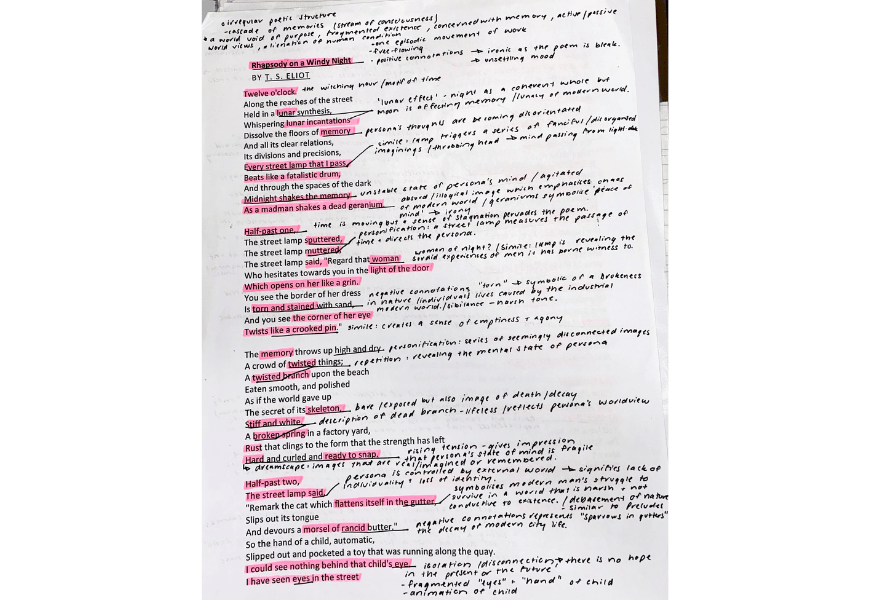 • irregular poetic structure
-cascade of memories (stream of consciousness)
• a world void of purpose, fragmented existence, concerned with memory, active/passive
world views, alienation of human condition
-one episodic movement of work
-free-flowing
Rhapsody on a Windy Night • positive connotations → ironic as the poem is bleak.
→ unsettling mood
BY T. S. ELIOT
Twelve o'clock. the witching hour /motif of time
Along the reaches of the street
'lunar effect' - night as a coherent whole but
Held in a lunar synthesis, moon is affecting memory /lunacy of modern world.
Whispering lunar incantations
Dissolve the floors of memory persona's thoughts are becoming disorientated
And all its clear relations,
simile: lamp triggers a series of fanciful/disorganised
Its divisions and precisions, imaginings /throbbing head → mind passing from light
Every street lamp that I pass
Beats like a fatalistic drum,
And through the spaces of the dark
Midnight shakes the memory unstable state of persona's mind / agitated
As a madman shakes a dead geranium. absurd/illogical image which emphasises chaos
of modern world /geraniums symbolise 'peace of
mind' → irony
Half-past one, time is moving but a sense of stagnation pervades the poem.
The street lamp sputtered, personification: a street lamp measures the passage of
The street lamp muttered, time + directs the persona.
The street lamp said, "Regard that woman woman of night? /simile: lamp is revealing the
Who hesitates towards you in the light of the door sordid experiences of men it has borne witness to.
Which opens on her like a grin.
You see the border of her dress negative connotations "torn" → symbolic of a brokeness
Is torn and stained with sand, in nature /individual) lives caused by the industrial
And you see the corner of her eye modern world./sibilance -harsh tone.
Twists like a crooked pin." simile: creates a sense of emptiness + agony
The memory throws up high and dry personification: series of seemingly disconnected images
A crowd of twisted things; repetition: revealing the mental state of persona
A twisted branch upon the beach
Eaten smooth, and polished
As if the world gave up
The secret of its skeleton, bare /exposed but also image of death/decay
Stiff and white. description of dead branch -lifeless /reflects persona's worldview
A broken spring in a factory yard,
Rust that clings to the form that the strength has left
Hard and curled and ready to snap. rising tension -gives impression
that persona's state of mind is fragile
↳ dreamscape: images that are real/imagined or remembered.
Half-past two, persona is controlled by external world → signifies lack of
The street lamp said, individuality + loss of identity.
"Remark the cat which flattens itself in the gutter, symbolises modern man's struggle to
survive in a world that is harsh + not
Slips out its tongue conducive to existence. /debasement of nature
-similar to Preludes
And devours a morsel of rancid butter." negative connotations represents "sparrows in gutters"
So the hand of a child, automatic, the decay of modern city life.
Slipped out and pocketed a toy that was running along the quay.
I could see nothing behind that child's eye. isolation /disconnection, → there is no hope
I have seen eyes in the street in the present or the future
-fragmented "eyes" + "hand" of child
-animation of child